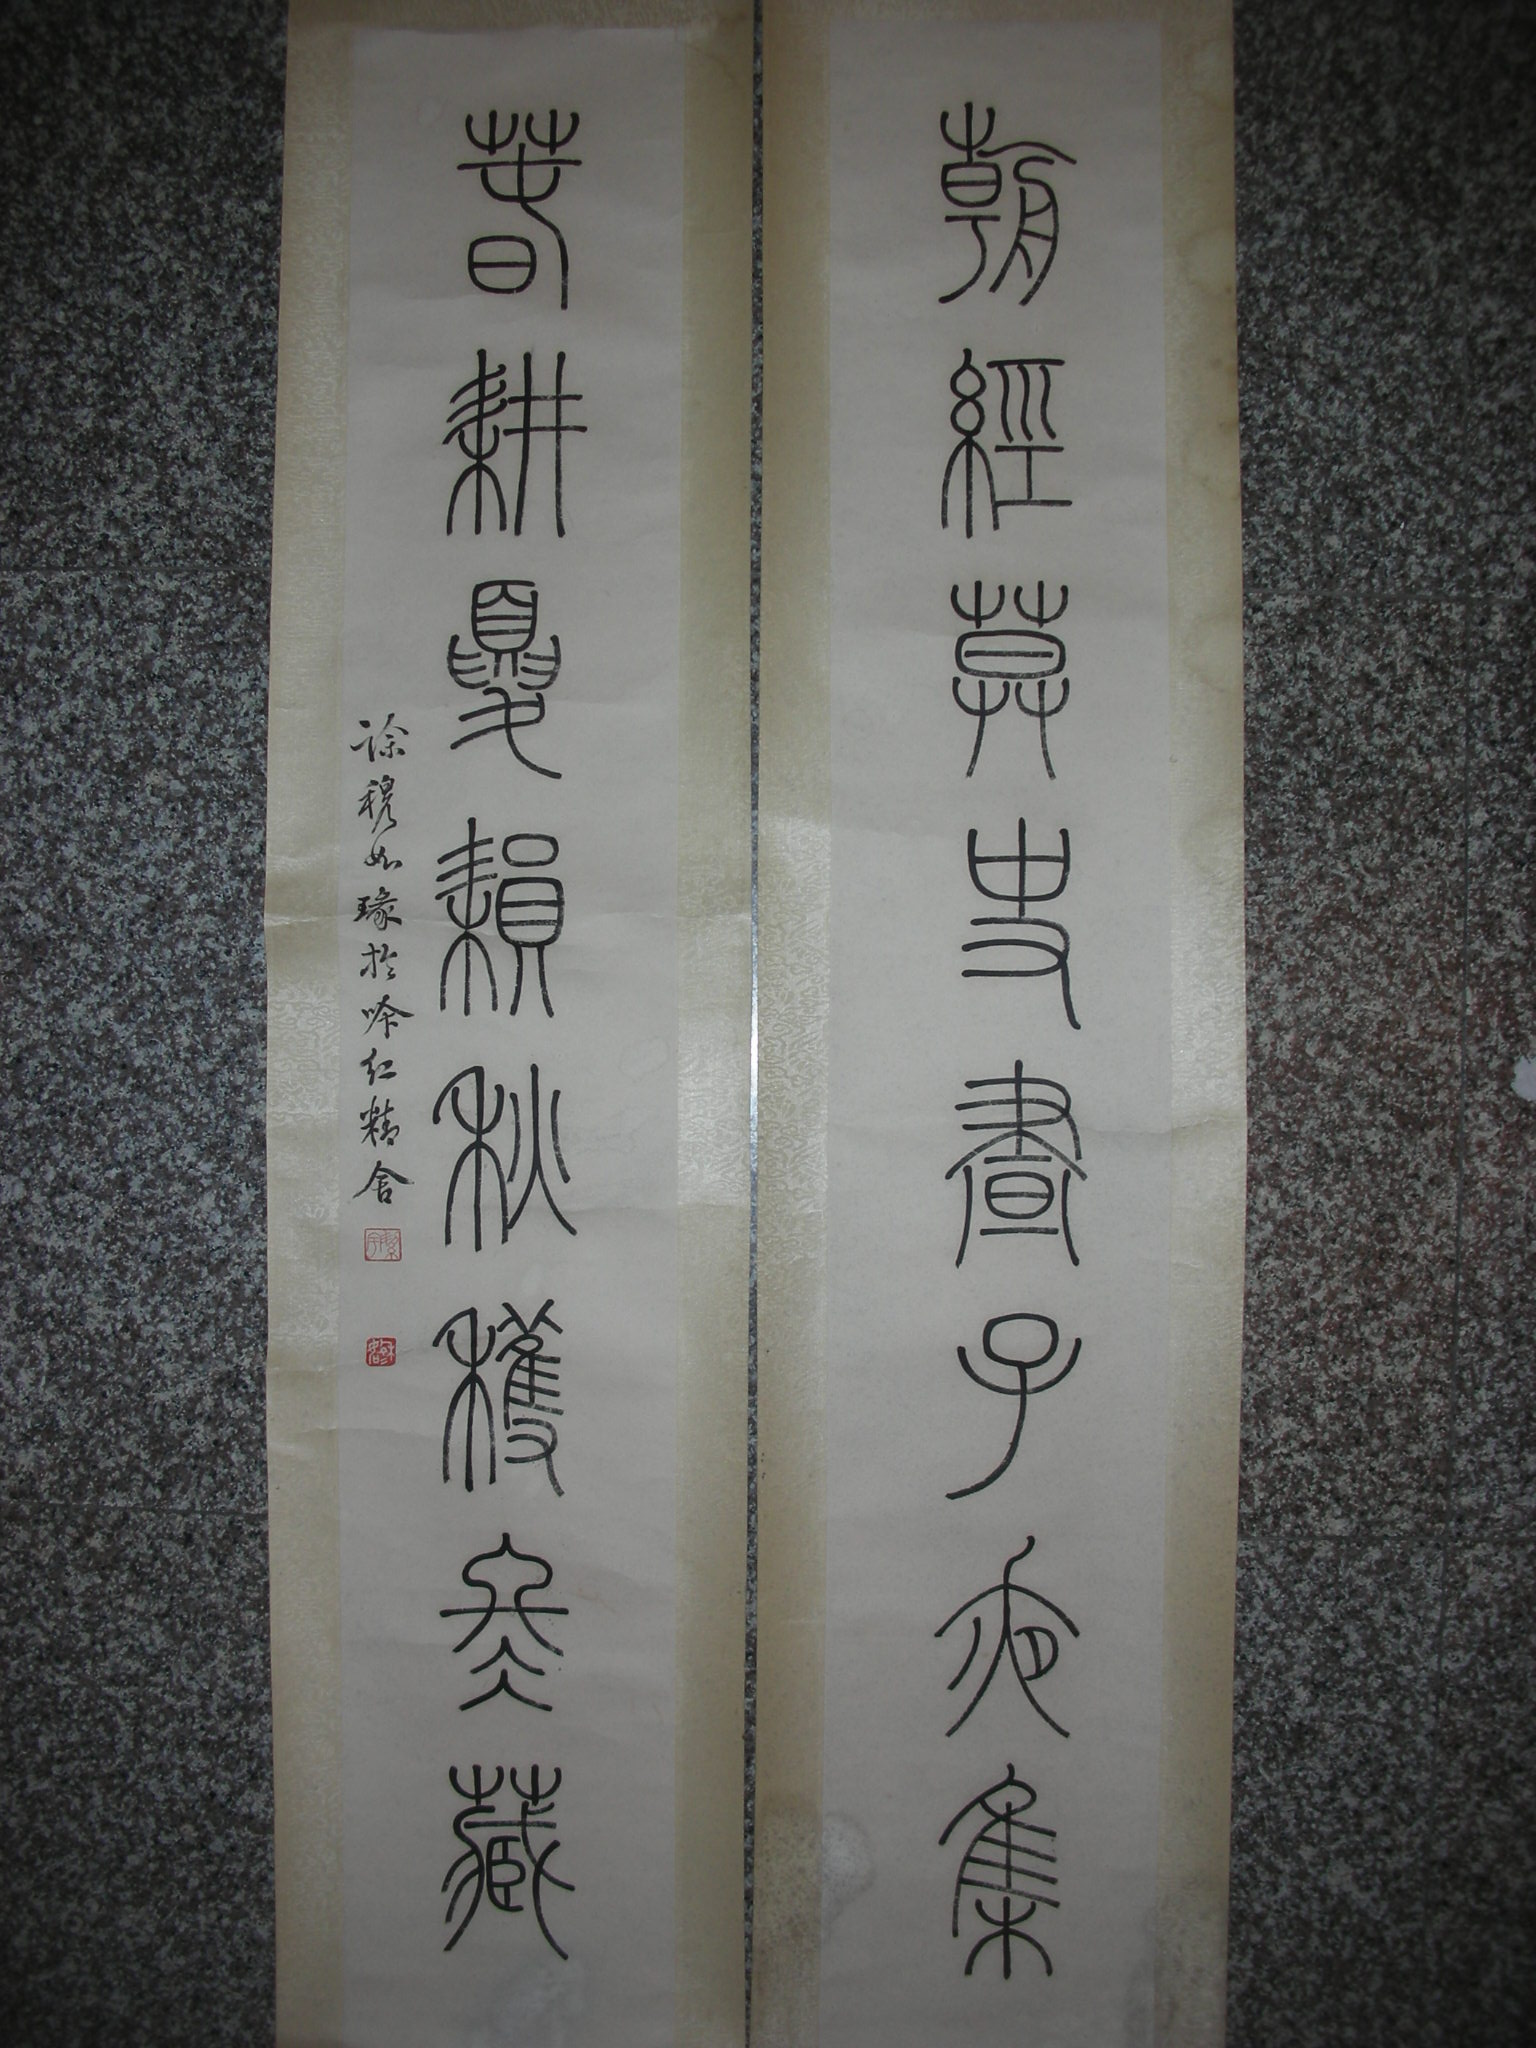 朝經莫史晝子夜集
萅耕夏耘秋穫冬藏
徐穆如瑑於吟紅精舍